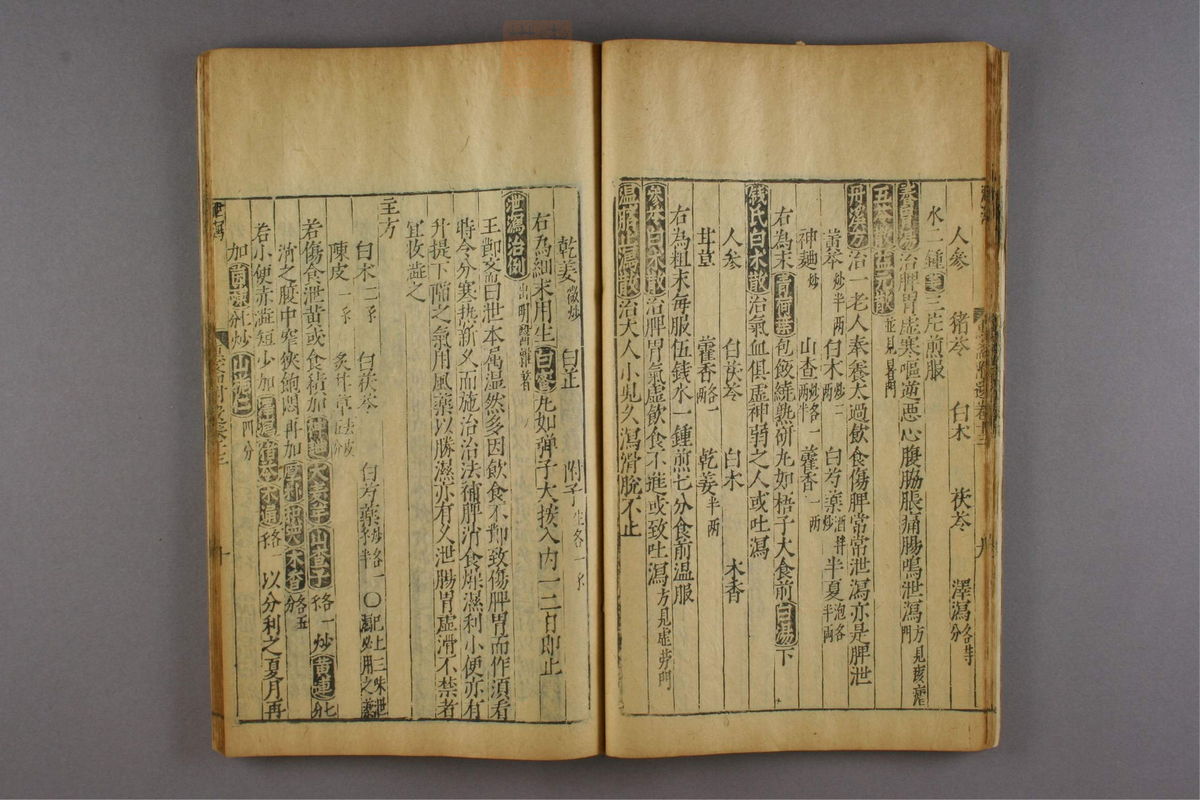 人參 猪苓 白术 茯苓 澤瀉各等分
水二鍾薑三片煎服
治脾胃虛寒嘔逆惡心腹脇脹痛腸鳴泄瀉方見門
五苓散益元散並見暑門
丹溪方治一老人奉養太過飲食傷脾常常泄瀉亦是脾泄
黃芩炒半兩 白术炒二兩 白芍藥酒拌炒 半夏泡各半兩
神麯炒 山查炒各一兩半 藿香一兩
右為末青荷葉包飯燒熟研丸如梧子大食前白湯下
錢氏白术散治氣血俱虛神弱之人或吐瀉
人參 白茯苓 白术 木香
甘草 藿香各一兩 乾姜半兩
右為粗末每服伍錢水一鍾煎七分食前温服
參苓白术散治脾胃氣虛飲食不進或致吐瀉方見虛勞門
温脾止瀉散治大人小兒久瀉滑脫不止
乾姜微炒 白芷 附子生各一
右為細末用生白蜜丸如彈子大撥入內一二寸即止
泄瀉治例出明醫雜著
王節齋曰泄本属温然多因飲食不節致傷脾胃而作須看
時令分寒熱新久而施治治法補脾消食燥濕利小便亦有
升提下陷之氣用風藥以勝濕亦有久泄腸胃虛滑不禁者
宜收澁之
主方
白术二 白茯苓 白芍藥炒各一半〇已上三味泄瀉必用之藥
陳皮一 炙甘草去皮五分
若傷食泄黃或食積加神麯大麥芽山查子各一炒黃連七分
消之腹中窄狹飽悶再加厚朴枳殼木香各五分
若小便赤澁短少加澤瀉猪苓木通各 以分利之夏月再
加茵陳七分炒山梔仁四分